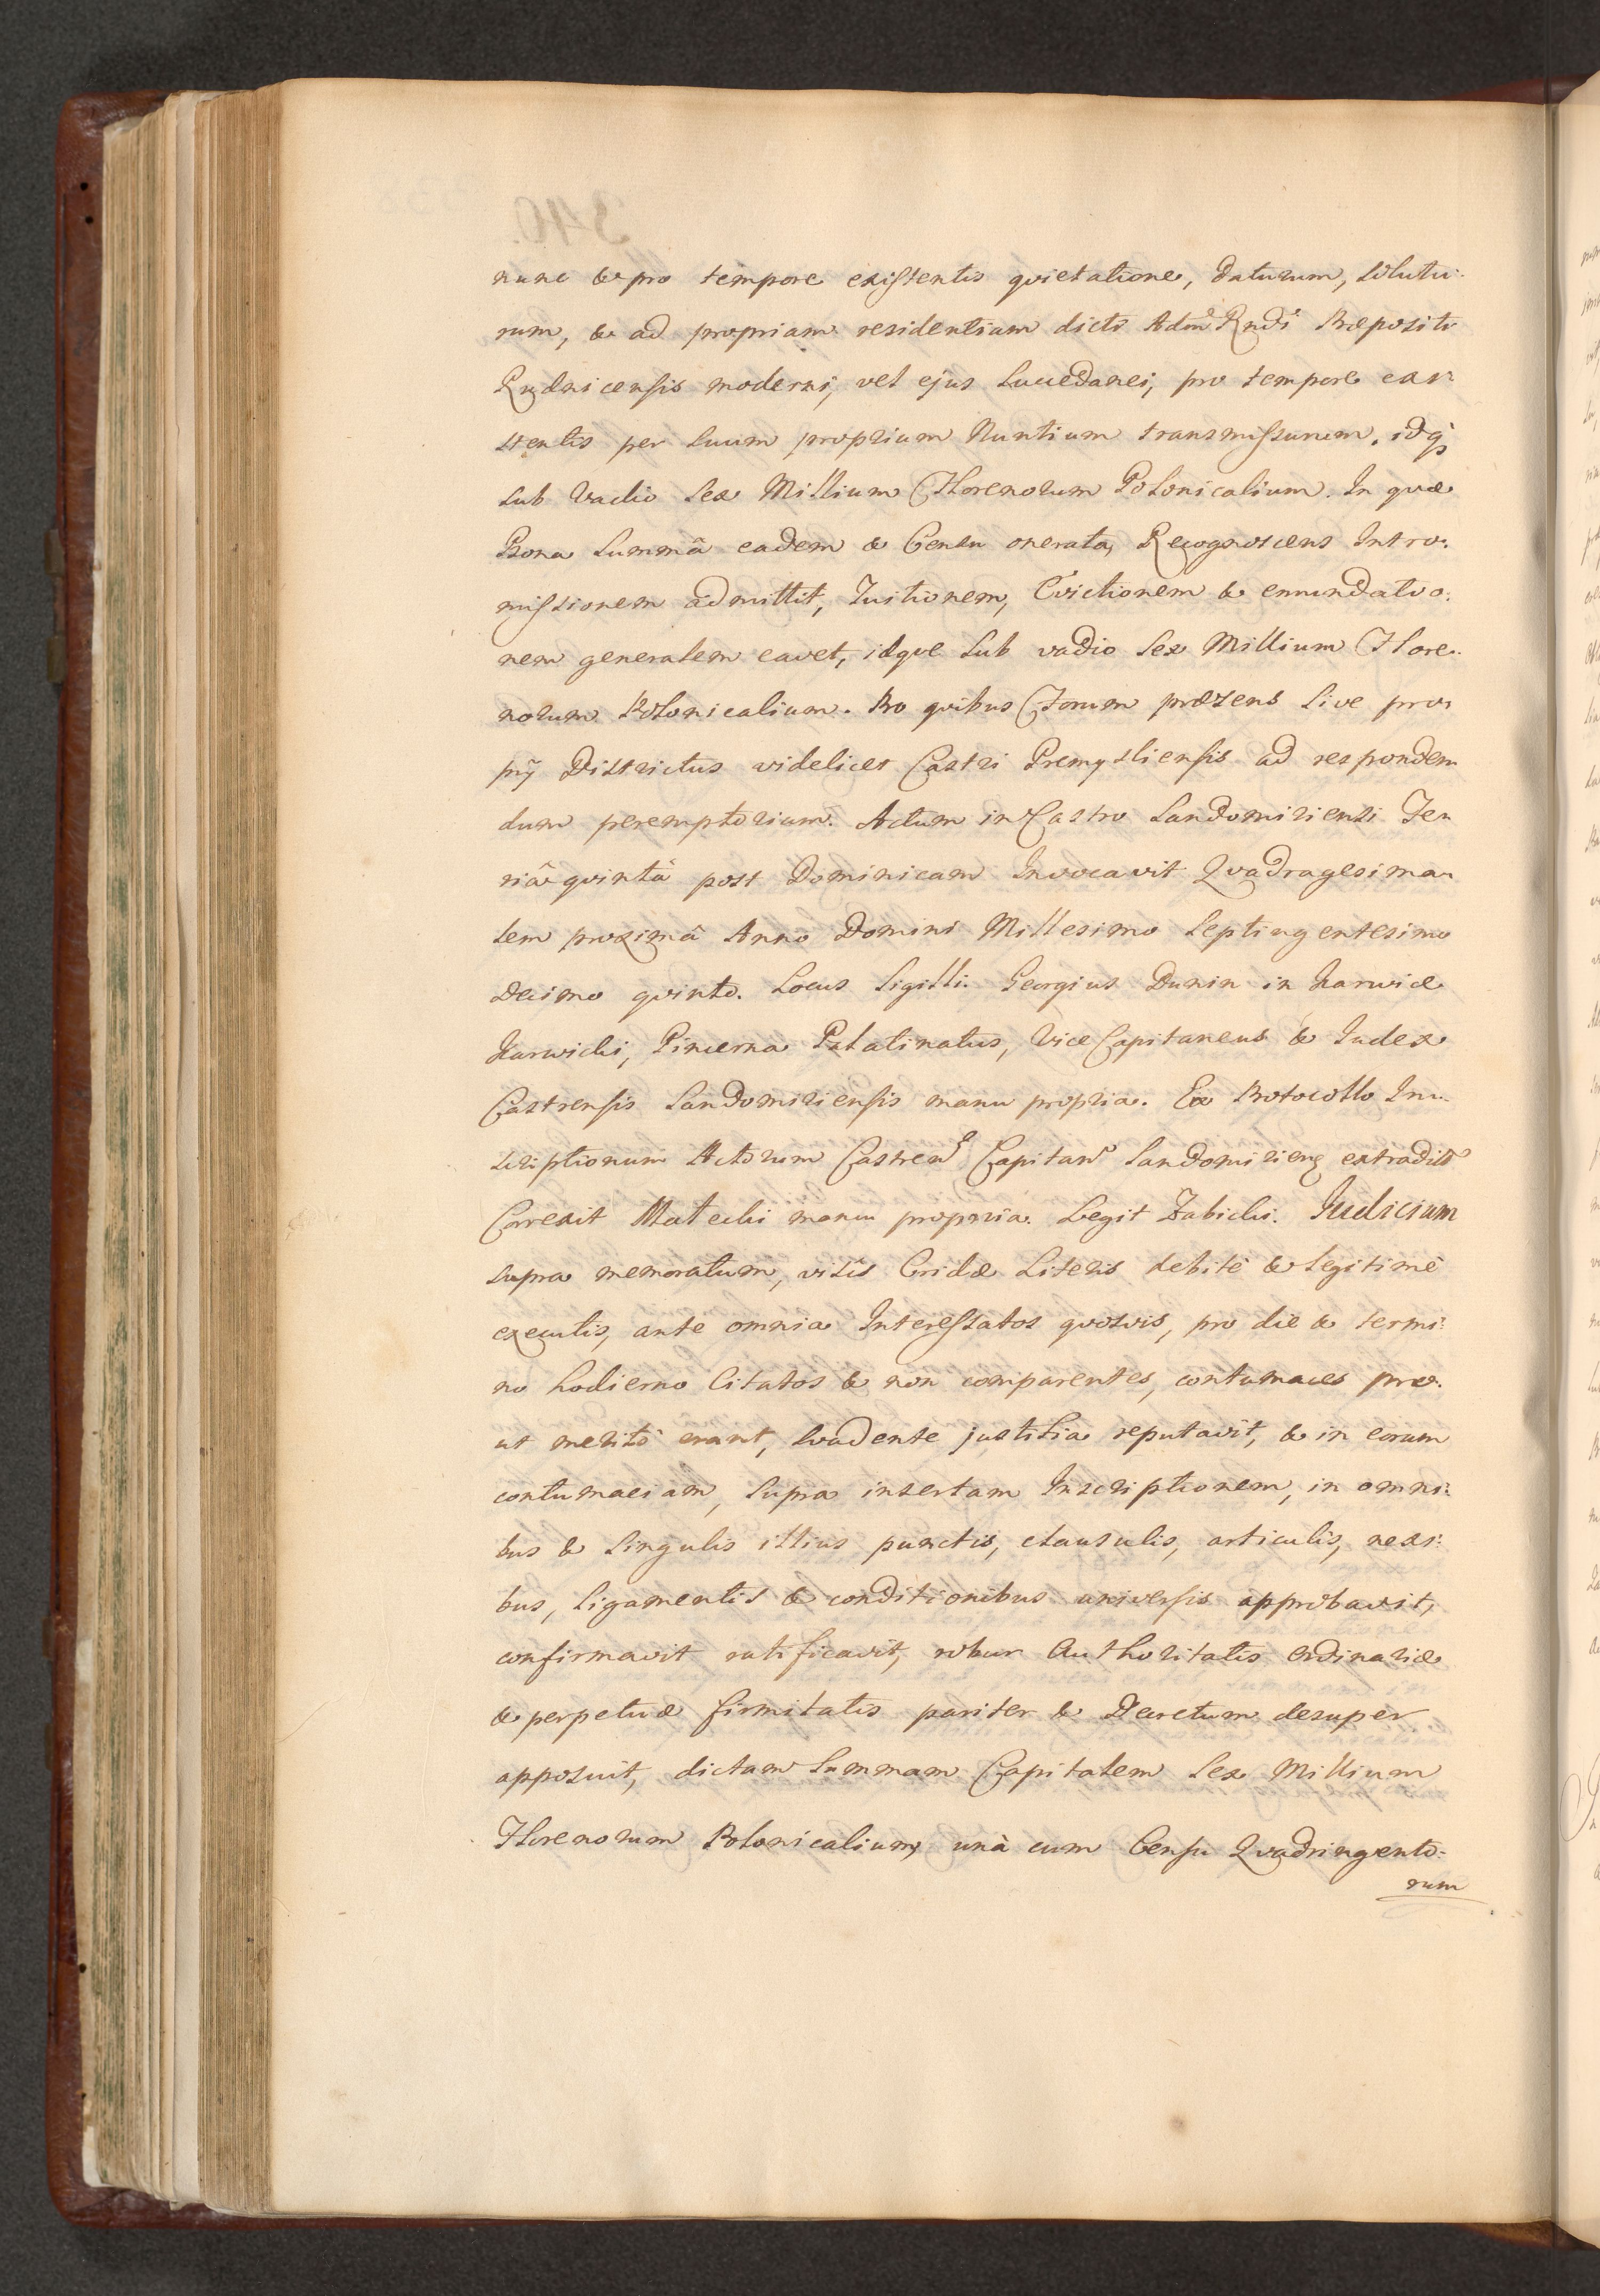 nunc & pro tempore existentis qvietatione, daturum, solutu-
rum, & ad propriam residentiam dicti Admd Rndi Præpositi
Rudnicensis moderni, vel ejus Succedanei, pro tempore exi-
stentis per suum proprium Nuntium transmissurum, idq
sub Vadio Sex Millium Florenorum Polonicalium. In quæ
Bona Summâ eadem & Censu onerata, Recognoscens Intro-
missionem admittit, Tuitionem, Evictionem & emundatio-
nem generalem cavet, idqve sub vadio Sex Millium Flore-
norum Polonicalium. Pro qvibus Forum præsens sive pro-
prij Districtus videlicet Castri Premysliensis ad responden-
dum peremptorium. Actum in Castro Sandomiriensi Fe-
riâ qvintâ post Dominicam Invocavit Qvadragesima-
lem proximâ Anno Domini Millesimo Septingentesimo
Decimo qvinto. Locus Sigilli. Georgius Dunin in Karwice
Karwicki, Pincerna Palatinatus, Vice Capitaneus & Judex
Castrensis Sandomiriensis manu propria. Ex Protocollo In-
scriptionum Actorum Castren Capitan Sandomirien extradit
Correxit Matecki manu propria. Legit Żabicki. Judicium
supra memoratum, visis Cridæ Literis debitè & legitimè
executis, ante omnia Interessatos qvosvis, pro die & termi-
no hodierno Citatos & non comparentes, contumaces pro-
ut meritò erant, svadente justitia reputavit, & in eorum
contumaciam, supra insertam Inscriptionem, in omni-
bus & singulis illius punctis, clausulis, articulis, nexi-
bus, ligamentis & conditionibus universis approbavit,
confirmavit ratificavit, robur Authoritatis ordinariæ
& perpetuæ firmitatis pariter & Decretum desuper
apposuit, dictam Summam Capitalem Sex Millium
Florenorum Polonicalium, unà cum Censu Qvadringento-
rum